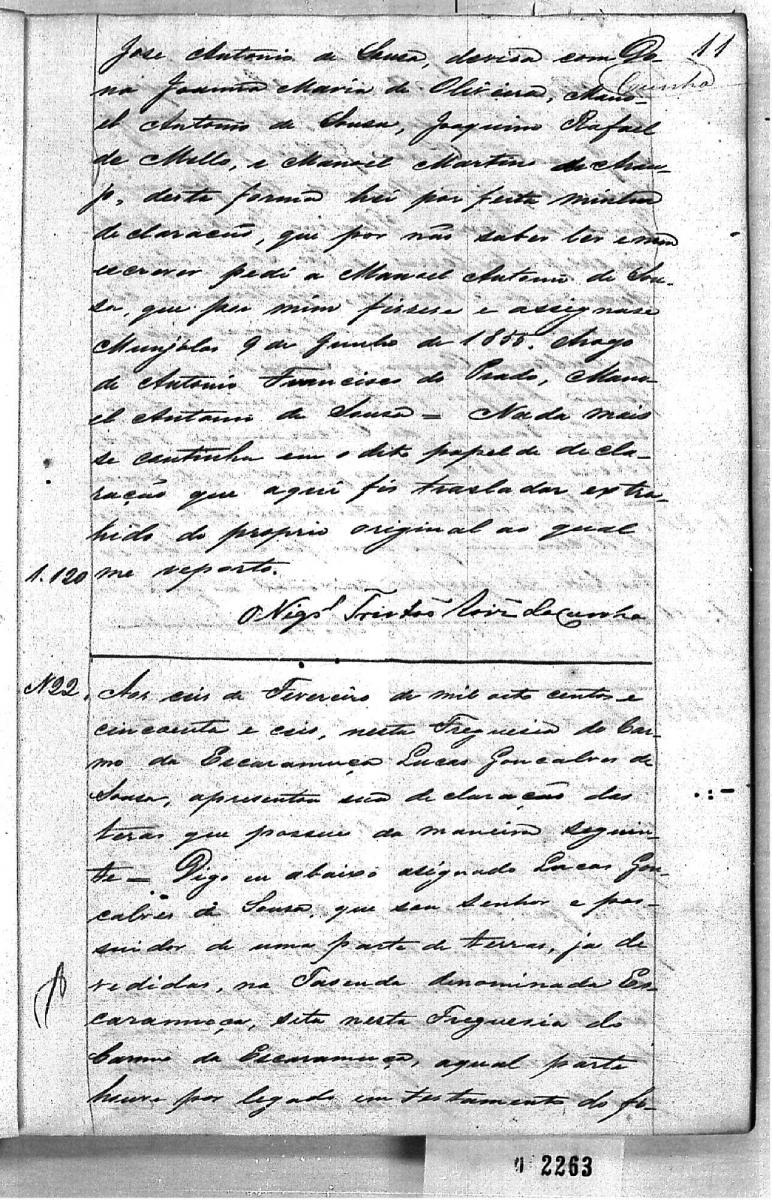 11
Cunha
Jose Antonio de Sousa, devisa com Do-
na Joanna Maria de Oliveira, Mano-
el Antonio de Sousa, Joaquim Rafael
de Mello, e Manoel Martins de Arau-
jo, desta forma hei por feita minha
declaracão, que por não saber ler e nem
escrever pedi a Manoel Antonio de Sou-
sa, que por mim fisese e assignase
Munjólos 9 de Junho de 1855. Arogo
de Antonio Francisco do Prado, Mano-
el Antonio de Sousa = Nada mais
se continha em o dito papel de decla-
ração que aqui fis trasladar extra-
hido do proprio original ao qual
1.120 me reporto.
O Vigº Tristão da Cunha
N22. Aos seis de Fevereiro de mil oito centos e
cincoenta e seis, nesta Freguesia do Car-
mo da Escaramuça Lucas Goncalves de
Sousa, apresentou sua declaração das
teras que possue da maneira seguin-
te = Digo eu abaixo asignado Lucas Gon-
calves de Sousa, que sou senhor e pos-
suidor de uma parte de terras, ja de
vedidas, na Fasenda denominada Es-
caramuça, sita nesta Freguesia do
Carmo da Escaramuça, aqual parte
houve por legado em testamento do fi-
2263